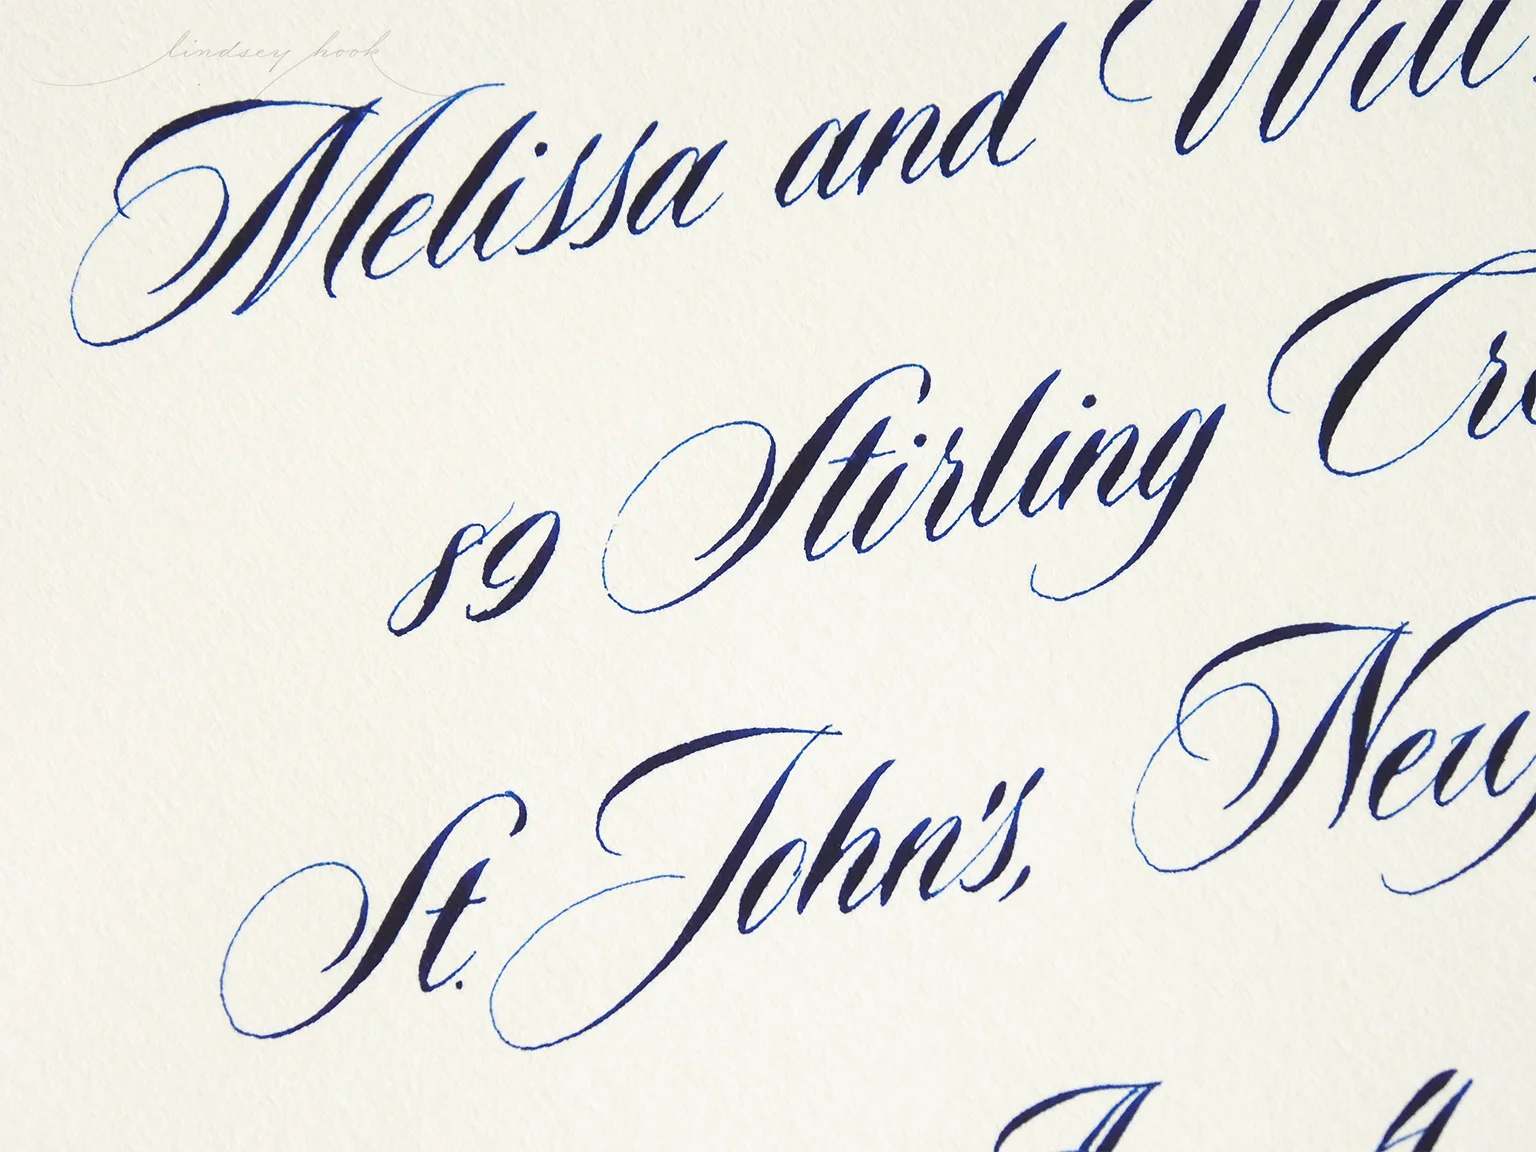 lindsey hook
Melissa and Will
89 Stirling Cre
St. John's, New
A